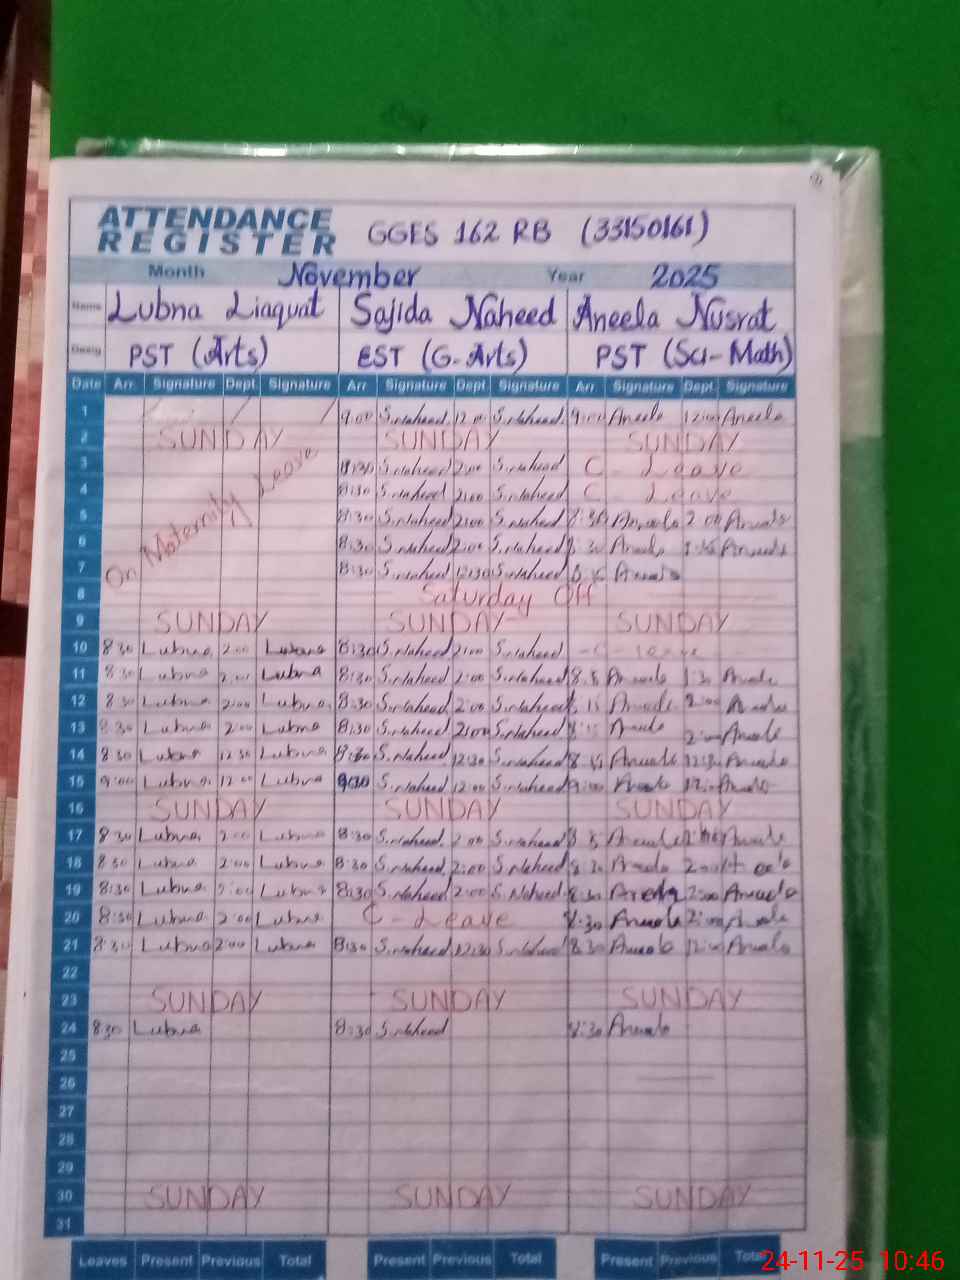 ATTENDANCE REGISTER GGES 162 RB (33150161)
Month November Year 2025
Name Lubna Liaquat Sajida Naheed Aneela Nusrat
Desig PST (Arts) EST (G-Arts) PST (Sci-Math)
Date Arr. Signature Dept. Signature Arr Signature Dept. Signature Arr. Signature Dept. Signature
1 9:00 S.naheed 12:00 S.naheed 9:00 Aneela 12:00 Aneela
2 SUNDAY SUNDAY SUNDAY
On Maternity Leave
3 8:30 S.naheed 2:00 S.naheed C - Leave
4 8:30 S.naheed 2:00 S.naheed C - Leave
5 8:30 S.naheed 2:00 S.naheed 8:30 Aneela 2:00 Aneela
6 8:30 S.naheed 2:00 S.naheed 8:30 Aneela Aneela
7 8:30 S.naheed 12:30 S.naheed Aneela
8 Saturday Off
9 SUNDAY SUNDAY SUNDAY
10 8:30 Lubna 2:00 Lubna 8:30 S.naheed 2:00 S.naheed - C - leave
11 8:30 Lubna 2:00 Lubna 8:30 S.naheed 2:00 S.naheed Aneela Aneela
12 8:30 Lubna 2:00 Lubna 8:30 S.naheed 2:00 S.naheed Aneela 2:00 Aneela
13 8:30 Lubna 2:00 Lubna 8:30 S.naheed 2:00 S.naheed Aneela 2:00 Aneela
14 8:30 Lubna 12:30 Lubna 8:30 S.naheed 12:30 S.naheed Aneela 12:30 Aneela
15 9:00 Lubna 12:00 Lubna 9:30 S.naheed 12:00 S.naheed 9:00 Aneela Aneela
16 SUNDAY SUNDAY SUNDAY
17 8:30 Lubna 2:00 Lubna 8:30 S.naheed 2:00 S.naheed Aneela Aneela
18 8:30 Lubna 2:00 Lubna 8:30 S.naheed 2:00 S.Naheed Aneela
19 8:30 Lubna 2:00 Lubna 8:30 S.naheed 2:00 S.Naheed 8:30 Aneela 2:00 Aneela
20 8:30 Lubna 2:00 Lubna C - Leave 8:30 Aneela 2:00 Aneela
21 8:30 Lubna 2:00 Lubna 8:30 S.naheed 12:30 S.naheed 8:30 Aneela Aneela
22
23 SUNDAY SUNDAY SUNDAY
24 8:30 Lubna 8:30 S.naheed 8:30 Aneela
25
26
27
28
29
30 SUNDAY SUNDAY SUNDAY
31
Leaves Present Previous Total Present Previous Total Present Previous Total
24-11-25 10:46